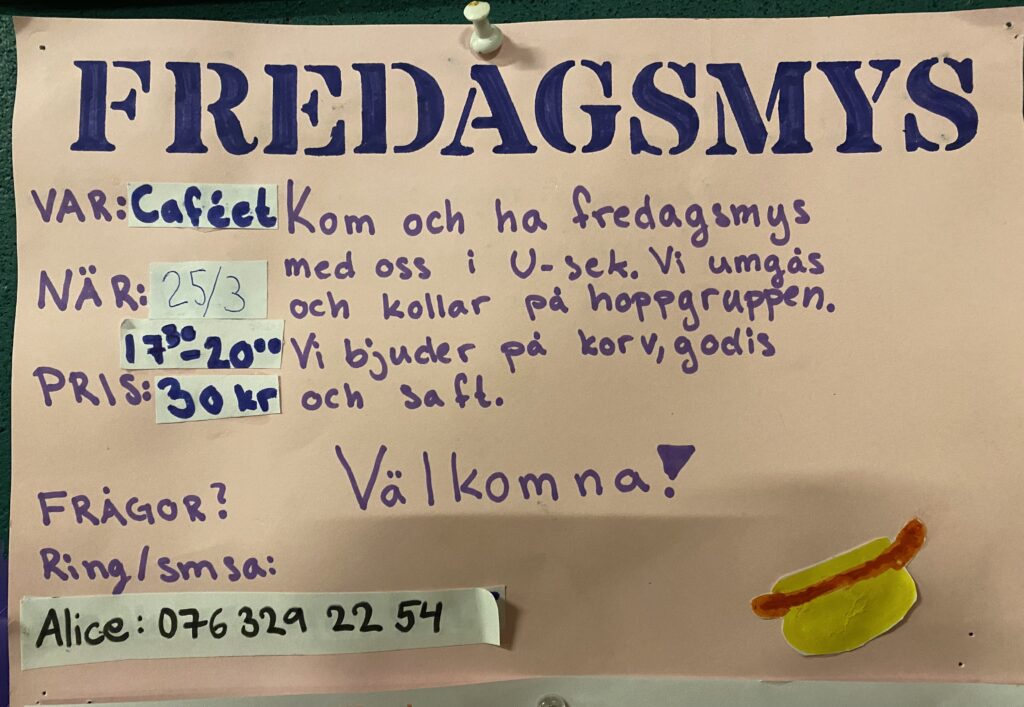 FREDAGSMYS
VAR: Caféet
NÄR: 25/3
17³⁰-20⁰⁰
PRIS: 30 kr
Kom och ha fredagsmys
med oss i U-sek. Vi umgås
och kollar på hoppgruppen.
Vi bjuder på korv, godis
och saft.
Välkomna!
FRÅGOR?
Ring/smsa:
Alice: 076 329 22 54